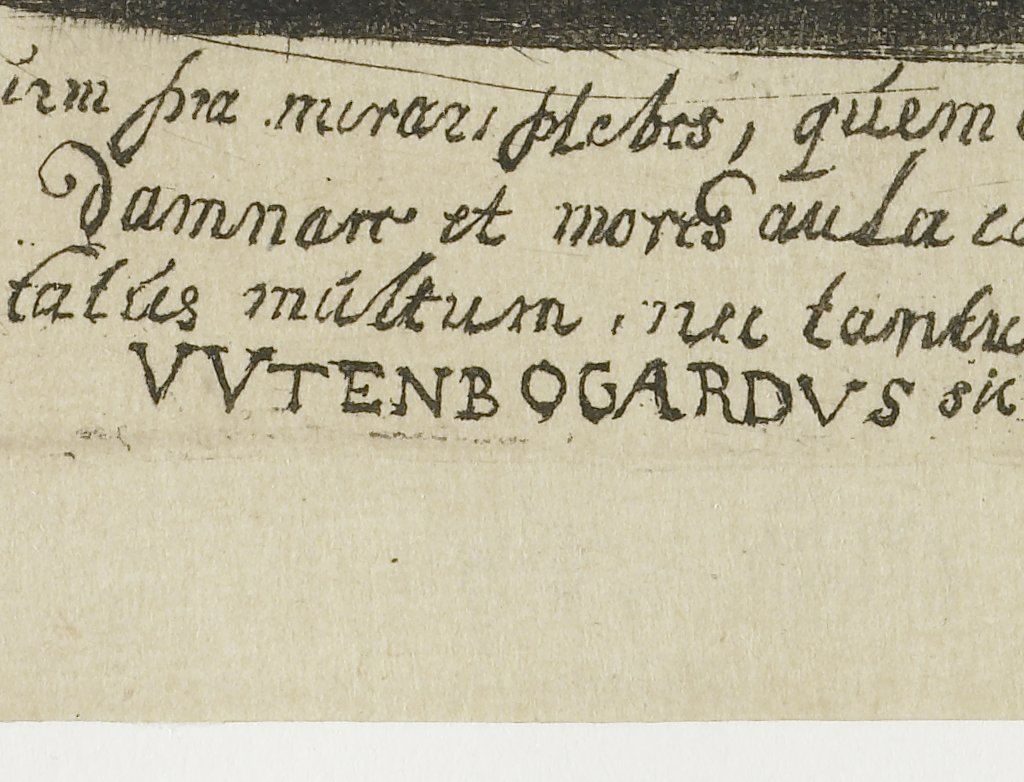 pia mirari plebes, quem
Damnare et mores aula
talus multum, nec
VVTENBOGARDVS sic